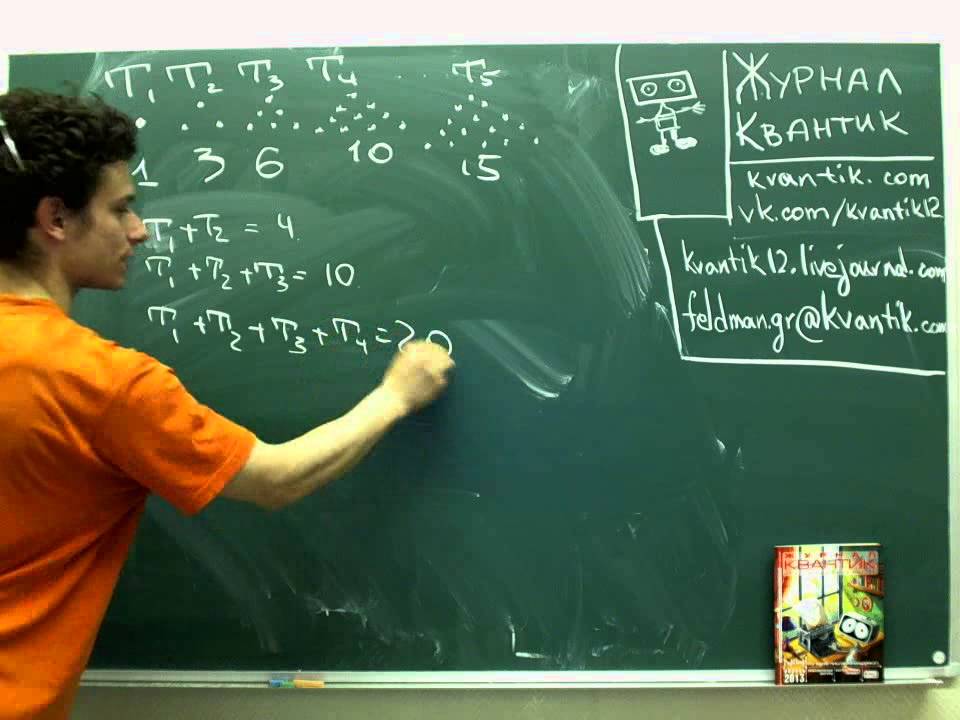 T₁ T₂ T₃ T₄ ... T₅
1 3 6 10 15
T₁ + T₂ = 4
T₁ + T₂ + T₃ = 10
T₁ + T₂ + T₃ + T₄ = 20
ЖУРНАЛ
КВАНТИК
kvantik.com
vk.com/kvantik12
kvantik12.livejournal.com
feldman.gr@kvantik.com
ЖУРНАЛ
КВАНТИК
2013